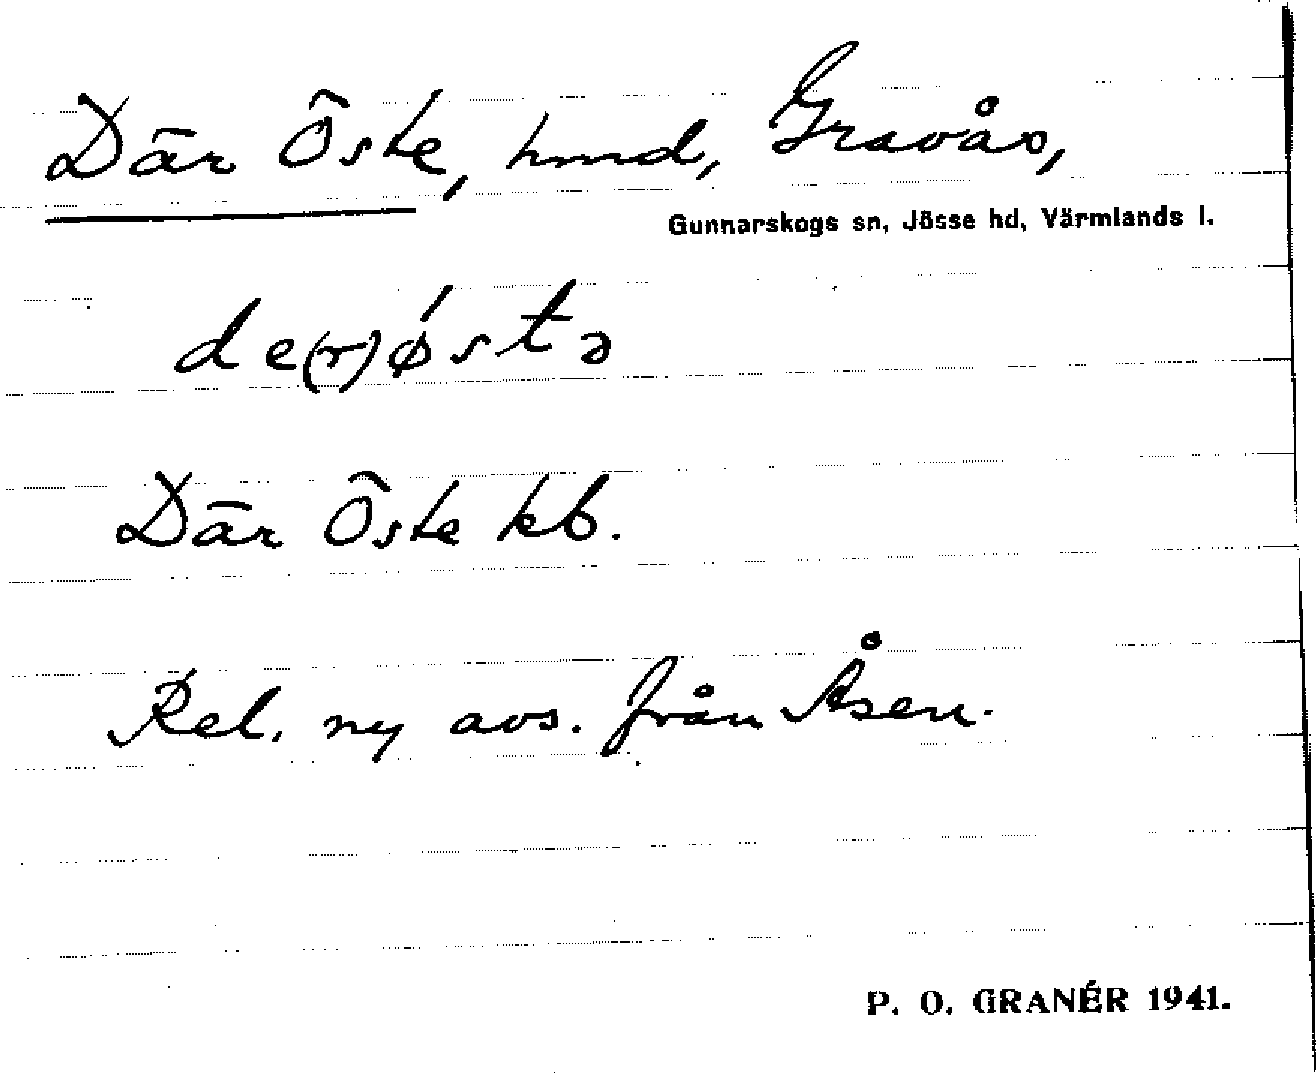 Där Öste, hmd, Gravås,
Gunnarskogs sn, Jösse hd, Värmlands l.
de(r)ǿstə
Där Öste kb.
Rel. ny avs. från Åsen.
P. O. GRANÉR 1941.